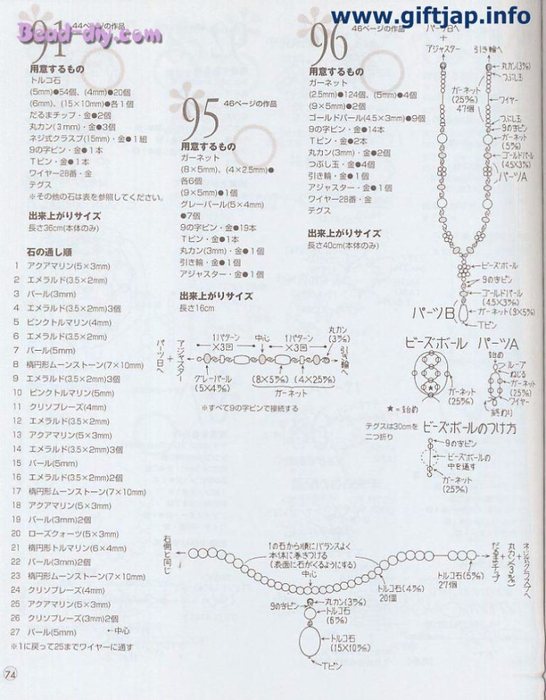 www.giftjap.info
Bead-diy.com
91
44ページの作品
用意するもの
トルコ石
(5mm)●54個、(4mm)●20個
(6mm)、(15×10mm)●各1個
だるまチップ・金●2個
丸カン(3mm)・金●3個
ネジ式クラスプ(15mm)・金●1組
9の字ピン・金●1本
Tピン・金●1本
ワイヤー28番・金
テグス
※その他の石は表を参照してください。
出来上がりサイズ
長さ36cm(本体のみ)
石の通し順
1 アクアマリン(5×3mm)
2 エメラルド(3.5×2mm)
3 パール(3mm)
4 エメラルド(3.5×2mm)3個
5 ピンクトルマリン(4mm)
6 エメラルド(3.5×2mm)
7 パール(5mm)
8 楕円形ムーンストーン(7×10mm)
9 エメラルド(3.5×2mm)3個
10 ピンクトルマリン(5mm)
11 クリソプレーズ(4mm)
12 エメラルド(3.5×2mm)
13 アクアマリン(5×3mm)
14 エメラルド(3.5×2mm)3個
15 パール(5mm)
16 エメラルド(3.5×2mm)2個
17 楕円形ムーンストーン(7×10mm)
18 アクアマリン(5×3mm)
19 パール(3mm)2個
20 ローズクォーツ(5×3mm)
21 楕円形トルマリン(6×4mm)
22 パール(3mm)2個
23 楕円形ムーンストーン(7×10mm)
24 クリソプレーズ(4mm)
25 アクアマリン(5×3mm)
26 クリソプレーズ(3mm)2個
27 パール(5mm) ←中心
※1に戻って25までワイヤーに通す
74
95
46ページの作品
用意するもの
ガーネット
(8×5mm)、(4×2.5mm)●
各6個
(9×5mm)●1個
グレーパール(5×4mm)
●7個
9の字ピン・金●19本
Tピン・金●1本
丸カン(3mm)・金●1個
引き輪・金●1個
アジャスター・金●1個
出来上がりサイズ
長さ16cm
96
46ページの作品
用意するもの
ガーネット
(2.5mm)●124個、(5mm)●4個
(9×5mm)●2個
ゴールドパール(4.5×3mm)●9個
9の字ピン・金●14本
Tピン・金●2本
丸カン(3mm)・金●2個
つぶし玉・金●4個
引き輪・金●1個
アジャスター・金●1個
ワイヤー28番・金
テグス
出来上がりサイズ
長さ40cm(本体のみ)
パーツBへ
+
アジャスター
引き輪へ
+
丸カン(3㎜)
つぶし玉
ガーネット
(2.5㎜)
47個
ワイヤー
つぶし玉
9の字ピン
ガーネット
(5㎜)
ゴールドパール
(4.5×3㎜)
パーツA
ビーズボール
9の字ピン
ゴールドパール
(4.5×3㎜)
ガーネット(9×5㎜)
パーツB
Tピン
パーツBへ
+
アジャスター
1パターン
×3回
中心
1パターン
×3回
丸カン
(3㎜)
+
引き輪へ
グレーパール
(5×4㎜)
(8×5㎜)
(4×2.5㎜)
ガーネット
※すべて9の字ピンで接続する
ビーズボール
ガーネット
(2.5㎜)
★=始め
テグスは30cmを
二つ折り
パーツA
始め
ループ
ねじる
ガーネット
(2.5㎜)
ワイヤー
終わり
ビーズボールのつけ方
9の字ピン
ビーズボールの
中を通す
ガーネット
(2.5㎜)
右側と同じ
1の石から順にバランスよく
本体に巻きつける
(表面に石がくるようにする)
中心
丸カン(3㎜)
9の字ピン
トルコ石
(6㎜)
トルコ石
(15×10㎜)
Tピン
トルコ石(4㎜)
20個
トルコ石(5㎜)
27個
だるまチップ
+
丸カン(3㎜)
+
ネジ式クラスプへ